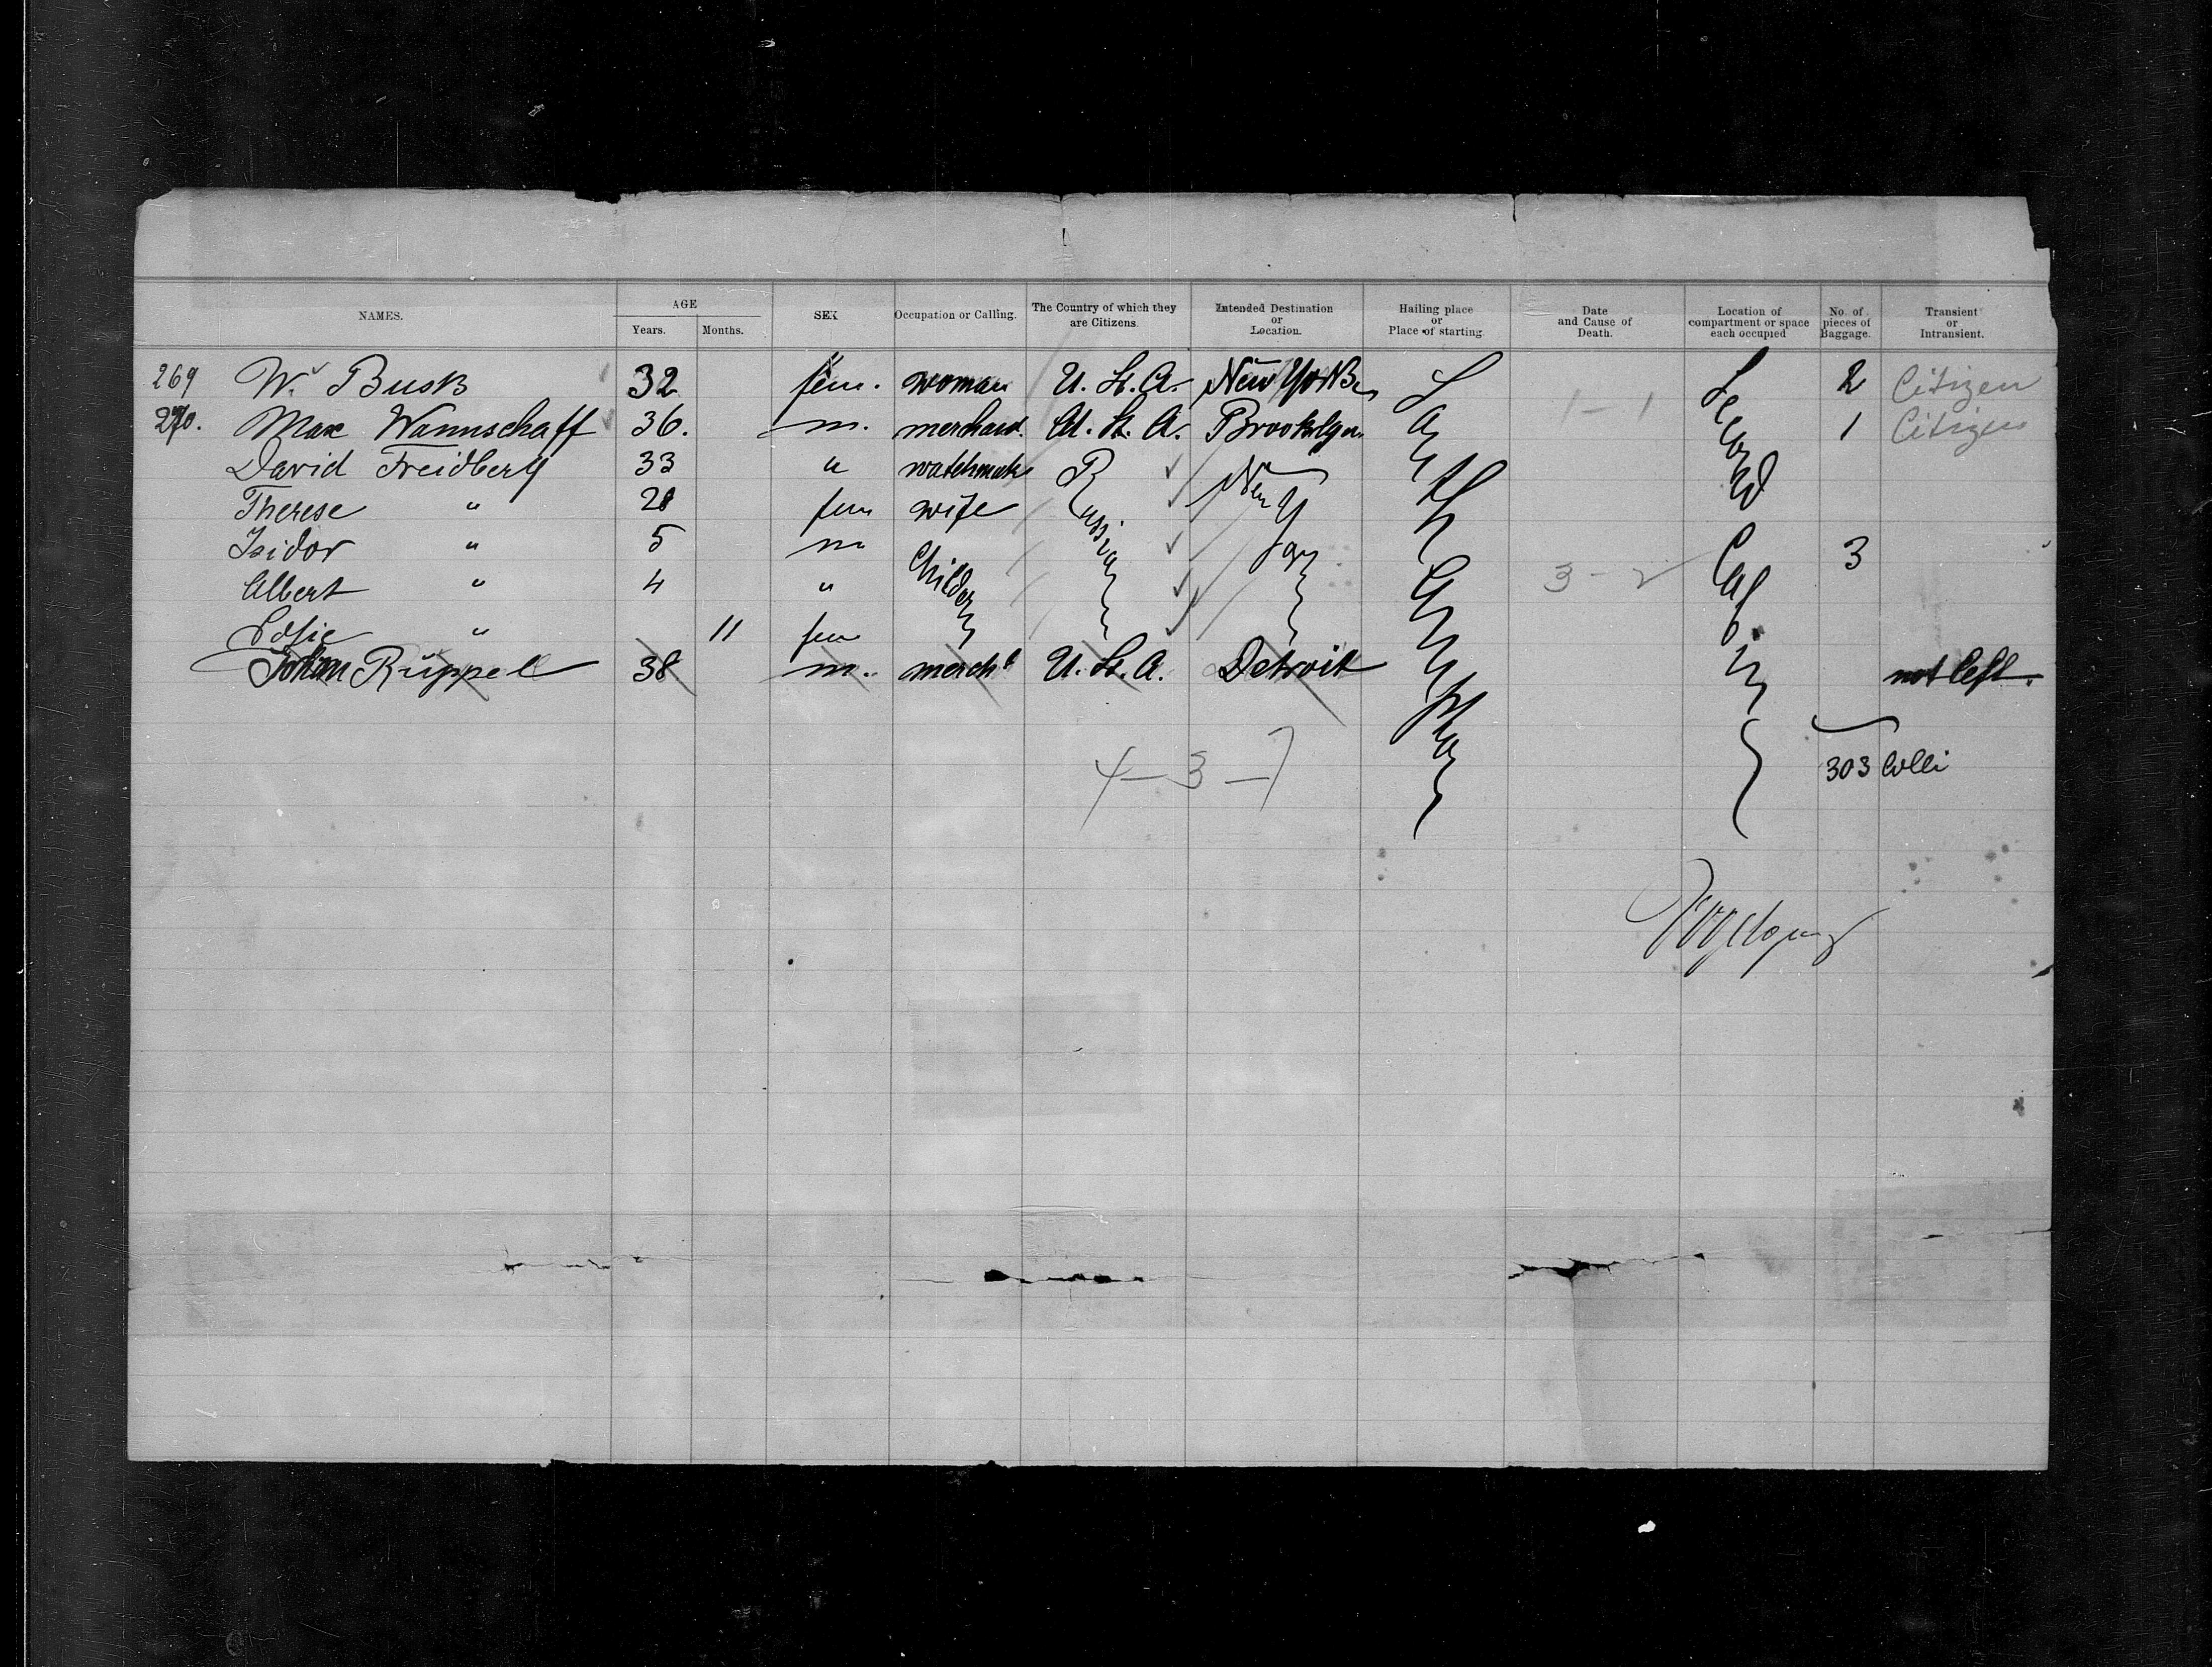 NAMES. AGE SEX Occupation or Calling. The Country of which they are Citizens. Intended Destination or Location. Hailing place or Place of starting. Date and Cause of Death. Location of compartment or space each occupied No. of pieces of Baggage. Transient or Intransient.
Years. Months.
269 W. Busk 32 fem. woman U. St. A. New York 2 Citizen
270. Max Wannschaff 36. m. merchand. U. St. A. Brooklyn 1 - 1 Second 1 Citizen
David Freidberg 33 " watchmak Russia New York
Therese " 28 fem wife
Isidor " 5 m Children Cab. 3
Albert " 4 " 3 - 2
" 11 fem
Johan Rüppel 38 m. mercht U. St. A. Detroit not left.
4 - 3 - 7 303 Colli